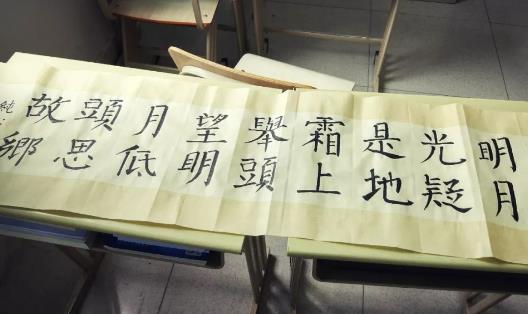 明月
光疑
是地
霜上
舉頭
望明
月低
頭思
故鄉
純